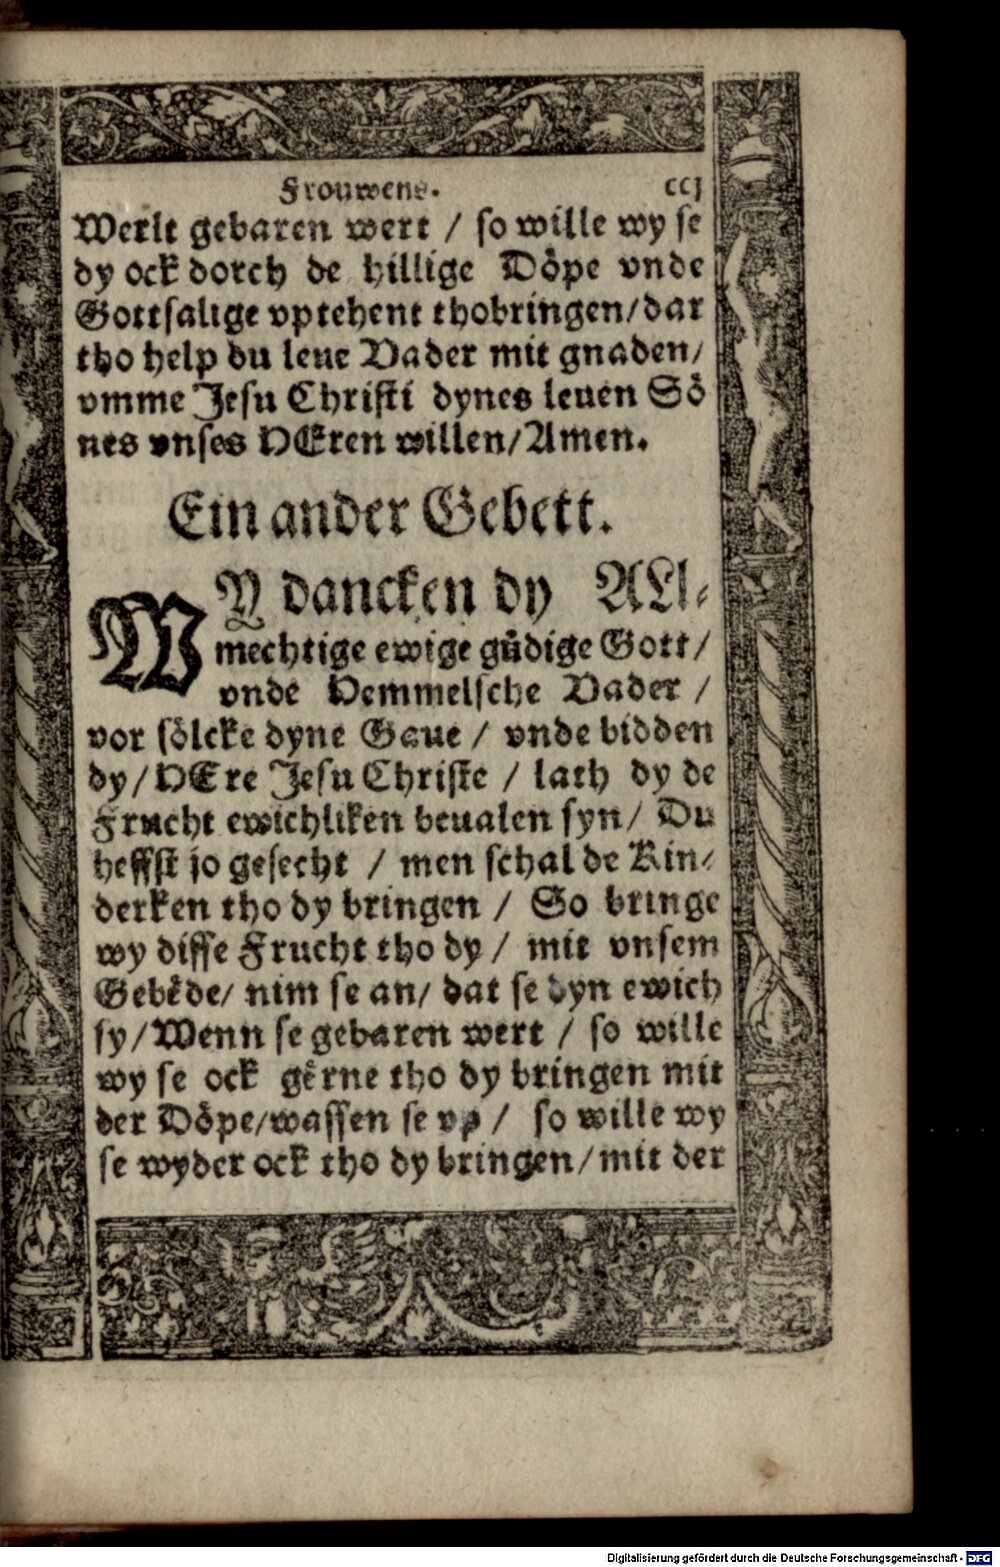 Frouwens. ccj
Werlt gebaren wert / so wille wy se
dy ock dorch de hillige Döpe vnde
Gottsalige vptehent thobringen/dar
tho help du leue Vader mit gnaden/
vmme Jesu Christi dynes leuen Sö
nes vnses HEren willen/Amen.
Ein ander Gebett.
WY dancken dy ALl⸗
mechtige ewige güdige Gott/
vnde Hemmelsche Vader /
vor sölcke dyne Gaue / vnde bidden
dy/HEre Jesu Christe / lath dy de
Frucht ewichliken beualen syn/ Du
heffst jo gesecht / men schal de Kin⸗
derken tho dy bringen / So bringe
wy disse Frucht tho dy / mit vnsem
Gebede/ nim se an/ dat se dyn ewich
sy/Wenn se gebaren wert / so wille
wy se ock gerne tho dy bringen mit
der Döpe/wassen se vp / so wille wy
se wyder ock tho dy bringen/mit der
Digitalisierung gefördert durch die Deutsche Forschungsgemeinschaft - DFG